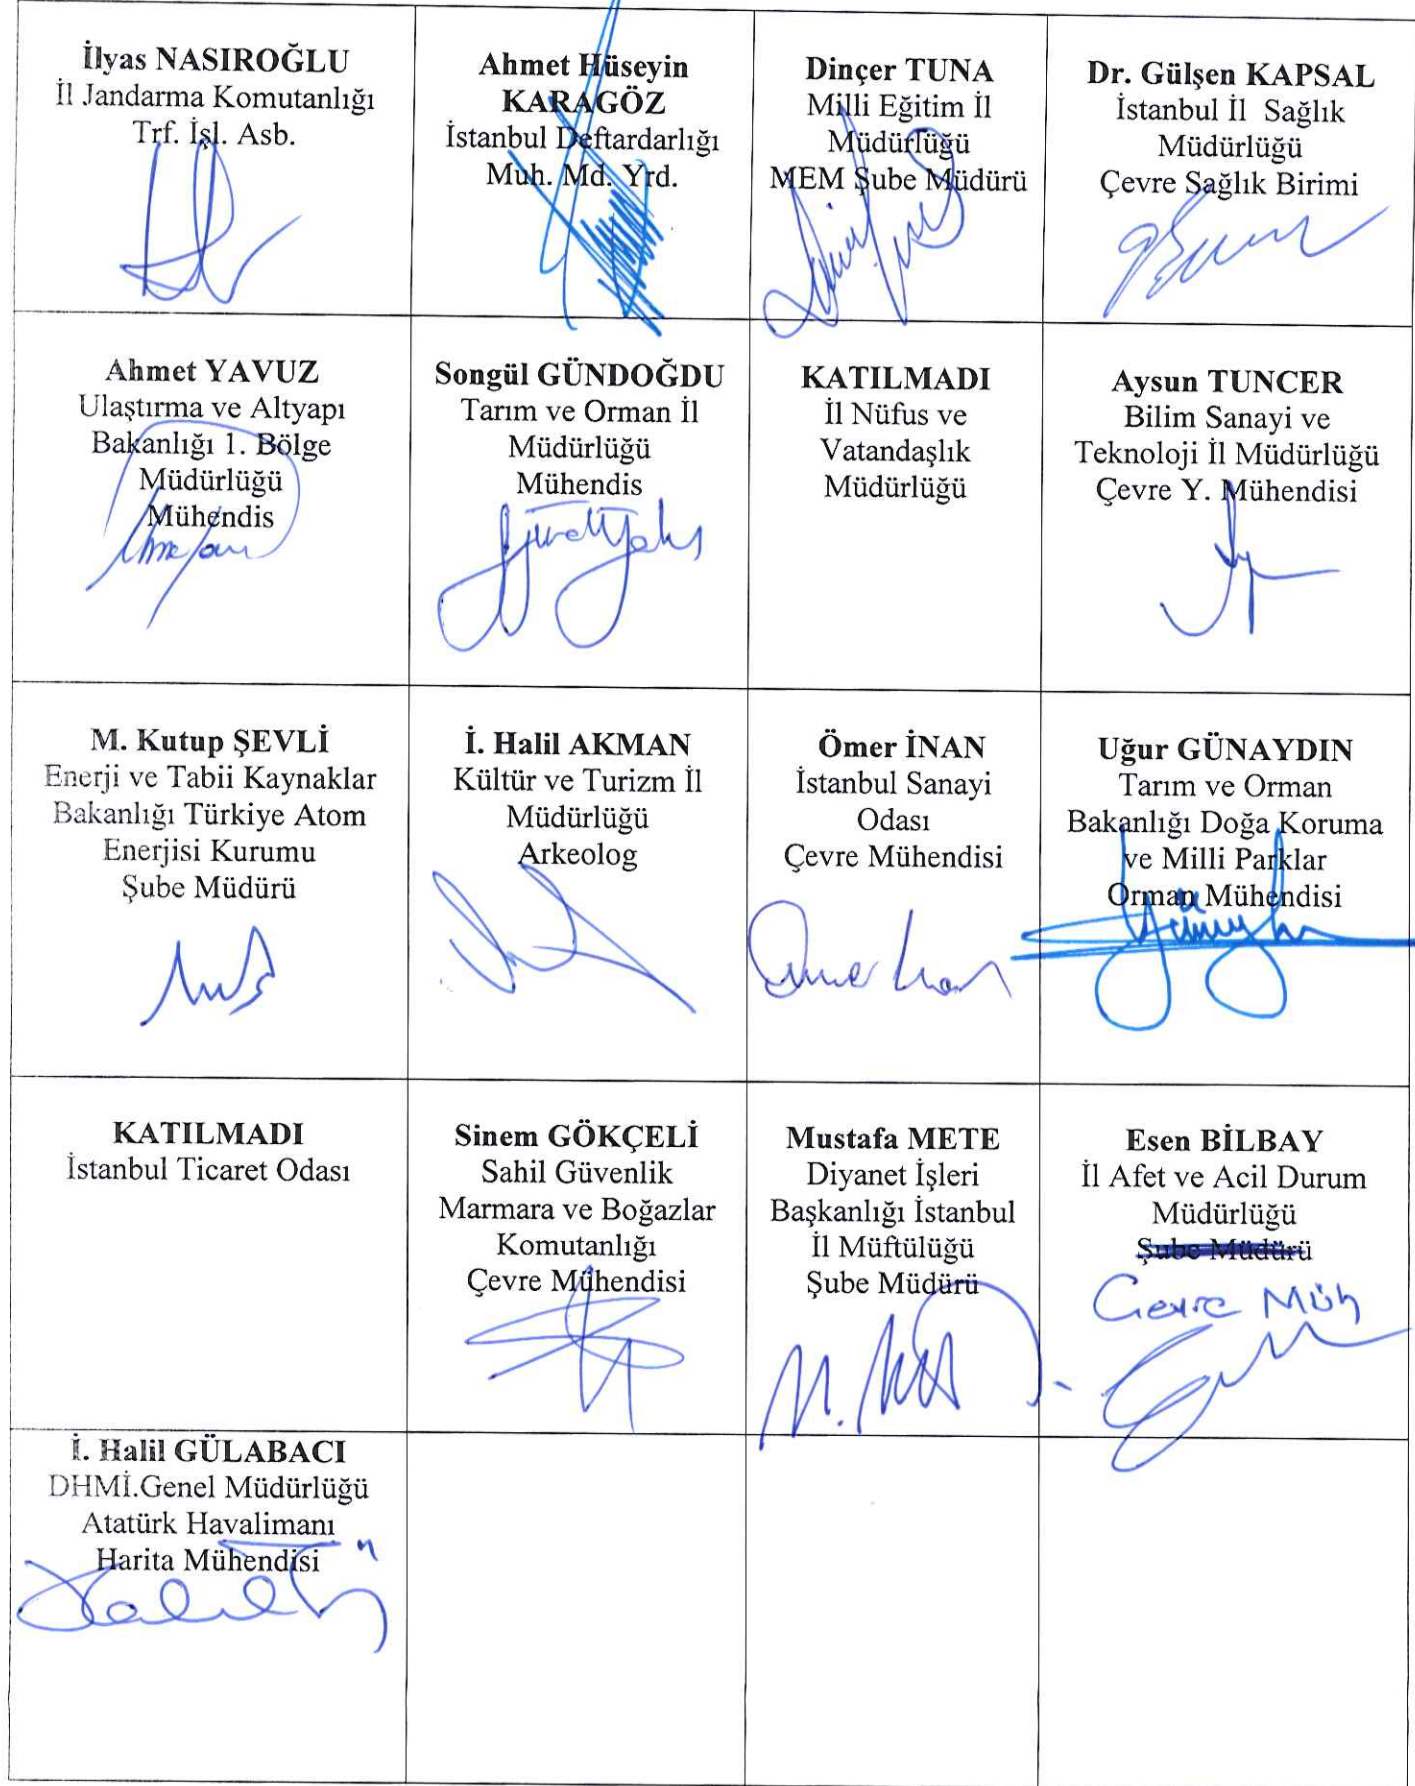 İlyas NASIROĞLU
İl Jandarma Komutanlığı
Trf. İşl. Asb.
Ahmet Hüseyin
KARAGÖZ
İstanbul Deftardarlığı
Muh. Md. Yrd.
Dinçer TUNA
Milli Eğitim İl
Müdürlüğü
MEM Şube Müdürü
Dr. Gülşen KAPSAL
İstanbul İl Sağlık
Müdürlüğü
Çevre Sağlık Birimi
Ahmet YAVUZ
Ulaştırma ve Altyapı
Bakanlığı 1. Bölge
Müdürlüğü
Mühendis
Songül GÜNDOĞDU
Tarım ve Orman İl
Müdürlüğü
Mühendis
KATILMADI
İl Nüfus ve
Vatandaşlık
Müdürlüğü
Aysun TUNCER
Bilim Sanayi ve
Teknoloji İl Müdürlüğü
Çevre Y. Mühendisi
M. Kutup ŞEVLİ
Enerji ve Tabii Kaynaklar
Bakanlığı Türkiye Atom
Enerjisi Kurumu
Şube Müdürü
İ. Halil AKMAN
Kültür ve Turizm İl
Müdürlüğü
Arkeolog
Ömer İNAN
İstanbul Sanayi
Odası
Çevre Mühendisi
Uğur GÜNAYDIN
Tarım ve Orman
Bakanlığı Doğa Koruma
ve Milli Parklar
Orman Mühendisi
KATILMADI
İstanbul Ticaret Odası
Sinem GÖKÇELİ
Sahil Güvenlik
Marmara ve Boğazlar
Komutanlığı
Çevre Mühendisi
Mustafa METE
Diyanet İşleri
Başkanlığı İstanbul
İl Müftülüğü
Şube Müdürü
Esen BİLBAY
İl Afet ve Acil Durum
Müdürlüğü
Şube Müdürü
Çevre Müh
İ. Halil GÜLABACI
DHMİ.Genel Müdürlüğü
Atatürk Havalimanı
Harita Mühendisi